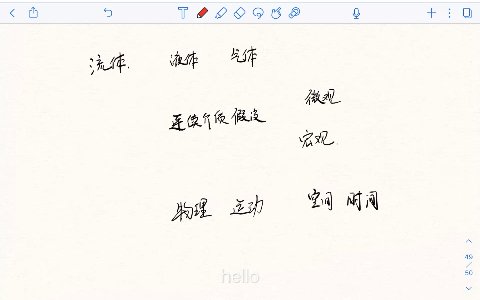 流体. 液体 气体
微观
连续介质假设
宏观.
物理 运动 空间 时间
49
/
50
hello